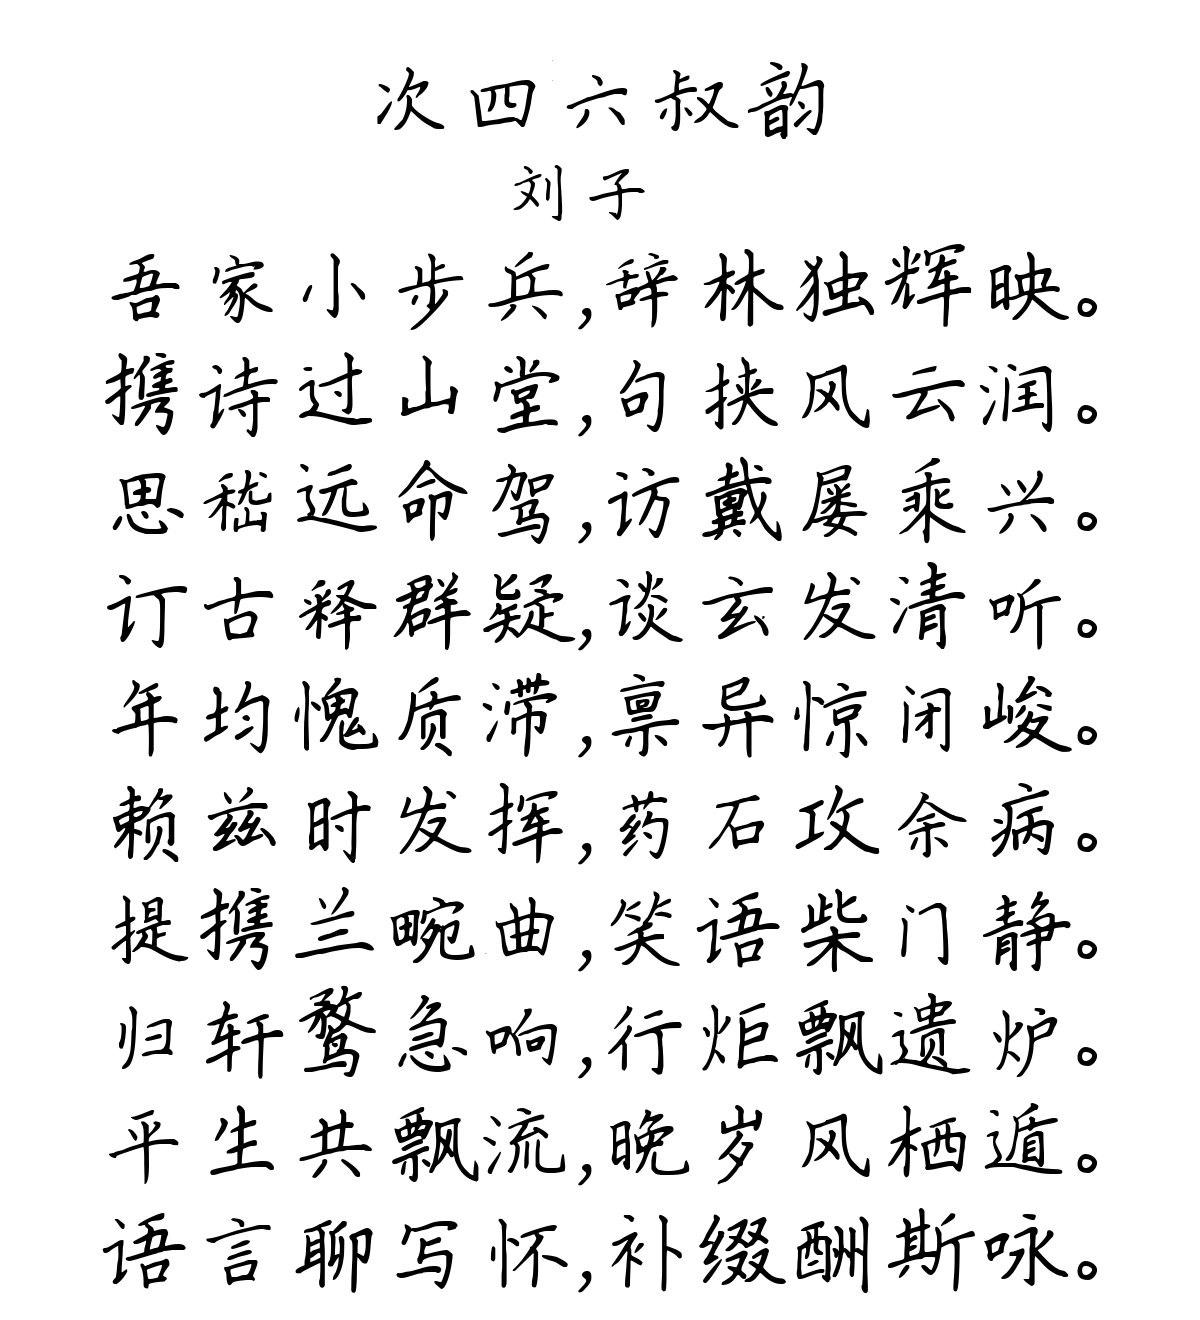 次四六叔韵
刘子
吾家小步兵,辞林独辉映。
携诗过山堂,句挟风云润。
思嵇远命驾,访戴屡乘兴。
订古释群疑,谈玄发清听。
年均愧质滞,禀异惊闭峻。
赖兹时发挥,药石攻余病。
提携兰畹曲,笑语柴门静。
归轩鹜急响,行炬飘遗炉。
平生共飘流,晚岁风栖遁。
语言聊写怀,补缀酬斯咏。